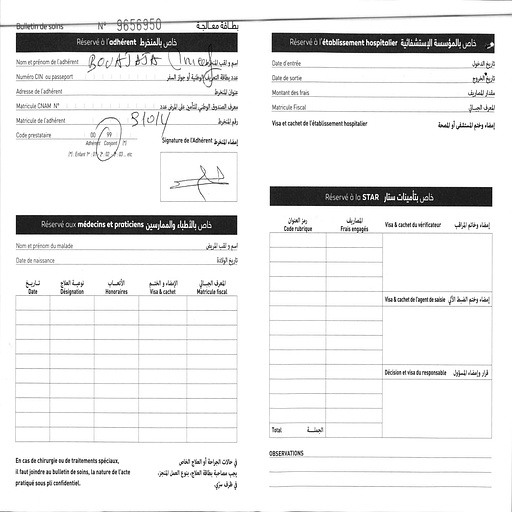 Bulletin de soins N° 9656950 بطاقة معالجة
Réservé à l'adhérent خاص بالمنخرط
Nom et prénom de l'adhérent BOUAJAJA اسم و لقب المنخرط
Numéro CIN ou passeport عدد بطاقة التعريف الوطنية أو جواز السفر
Adresse de l'adhérent عنوان المنخرط
Matricule CNAM N° معرف الصندوق الوطني للتأمين على المرض عدد
Matricule de l'adhérent رقم المنخرط
Code prestataire 00 99 Signature de l'Adhérent إمضاء المنخرط
Adhérent Conjoint (*)
(*) Enfant 1er : 01, 2e : 02, 3e : 03... etc
Réservé aux médecins et praticiens خاص بالأطباء والممارسين
Nom et prénom du malade اسم و لقب المريض
Date de naissance تاريخ الولادة
تاريخ نوعية العلاج الأتعاب الإمضاء و الختم المعرف الجبائي
Date Désignation Honoraires Visa & cachet Matricule fiscal
En cas de chirurgie ou de traitements spéciaux,
il faut joindre au bulletin de soins, la nature de l'acte
pratiqué sous pli confidentiel.
في حالات الجراحة أو العلاج الخاص
يجب مصاحبة بطاقة العلاج، بنوع العمل المنجز،
في ظرف سري.
Réservé à l'établissement hospitalier خاص بالمؤسسة الإستشفائية
Date d'entrée تاريخ الدخول
Date de sortie تاريخ الخروج
Montant des frais مقدار المصاريف
Matricule Fiscal المعرف الجبائي
Visa et cachet de l'établissement hospitalier إمضاء وختم المستشفى أو المصحة
Réservé à la STAR خاص بتأمينات ستار
رمز العنوان المصاريف
Code rubrique Frais engagés
Visa & cachet du vérificateur إمضاء وخاتم المراقب
Visa & cachet de l'agent de saisie إمضاء وختم الضبط الآلي
Décision et visa du responsable قرار وإمضاء المسؤول
Total الجملة
OBSERVATIONS